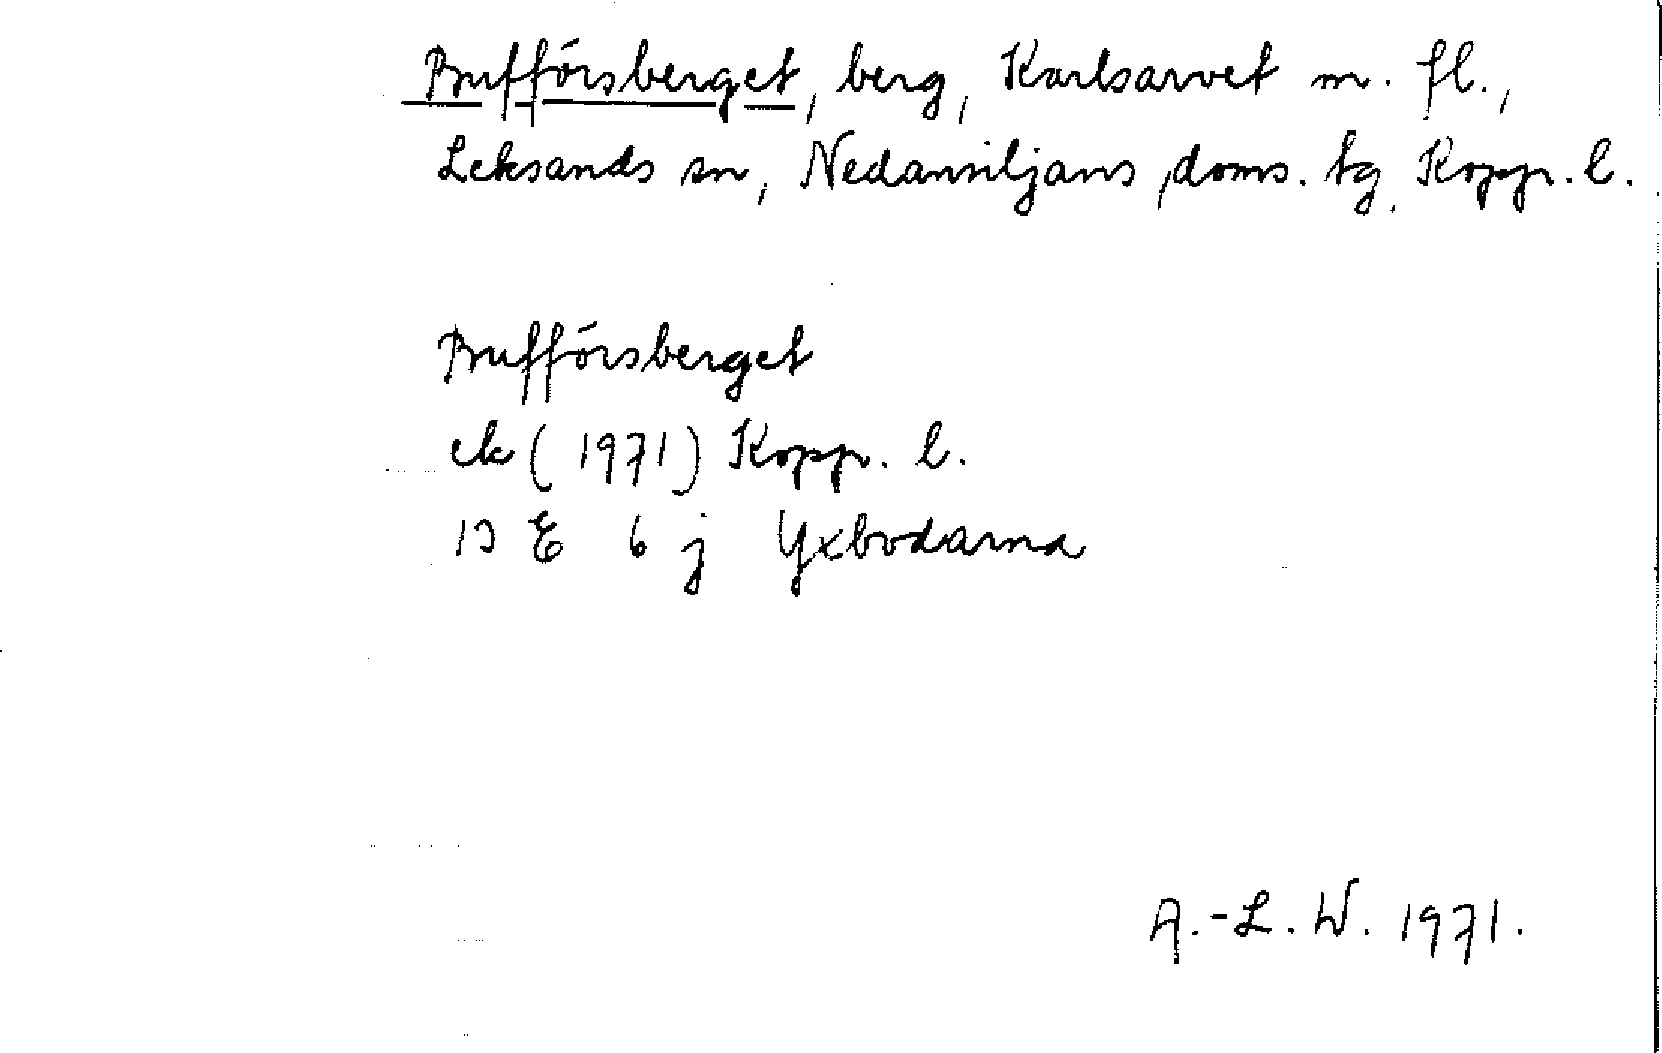 Bufförsberget, berg, Karlsarvet m. fl.,
Leksands sn, Nedansiljans doms. tg, Kopp. l.
Bufförsberget
ek (1971) Kopp. l.
13 E 6 j Yxbodarna
A.-L. W. 1971.